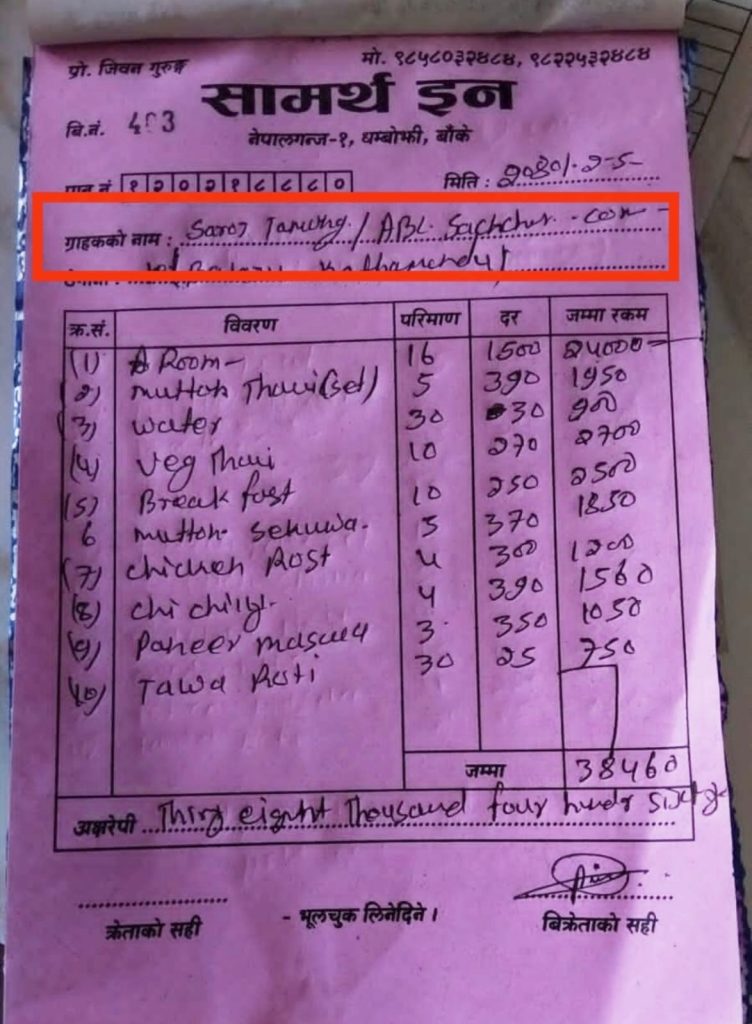 प्रो. जिवन गुरुङ्ग मो. ९८५८०३२४८४, ९८२२५३२४८४
सामर्थ इन
बि.नं. 403
नेपालगन्ज-१, धम्बोझी, बाँके
पान नं १२०२१८८८० मिति : २०८०।२-५-
ग्राहकको नाम : Saroj Tamang / ABL
Kathmandu
क्र.सं. विवरण परिमाण दर जम्मा रकम
(1) Room - 16 1500 24000-
(2) mutton Thali (set) 5 390 1950
(3) water 30 30 900
(4) veg Thali 10 270 2700
(5) Break fast 10 250 2500
6 mutton Sekuwa. 5 370 1850
(7) chicken Rost 4 300 1200
(8) chi chilly. 4 390 1560
(9) Paneer masala 3 350 1050
10) Tawa Roti 30 25 750
जम्मा 38460
अक्षरेपी Thirty eight Thousand four hundr sixty
क्रेताको सही - भूलचुक लिनेदिने । बिक्रेताको सही